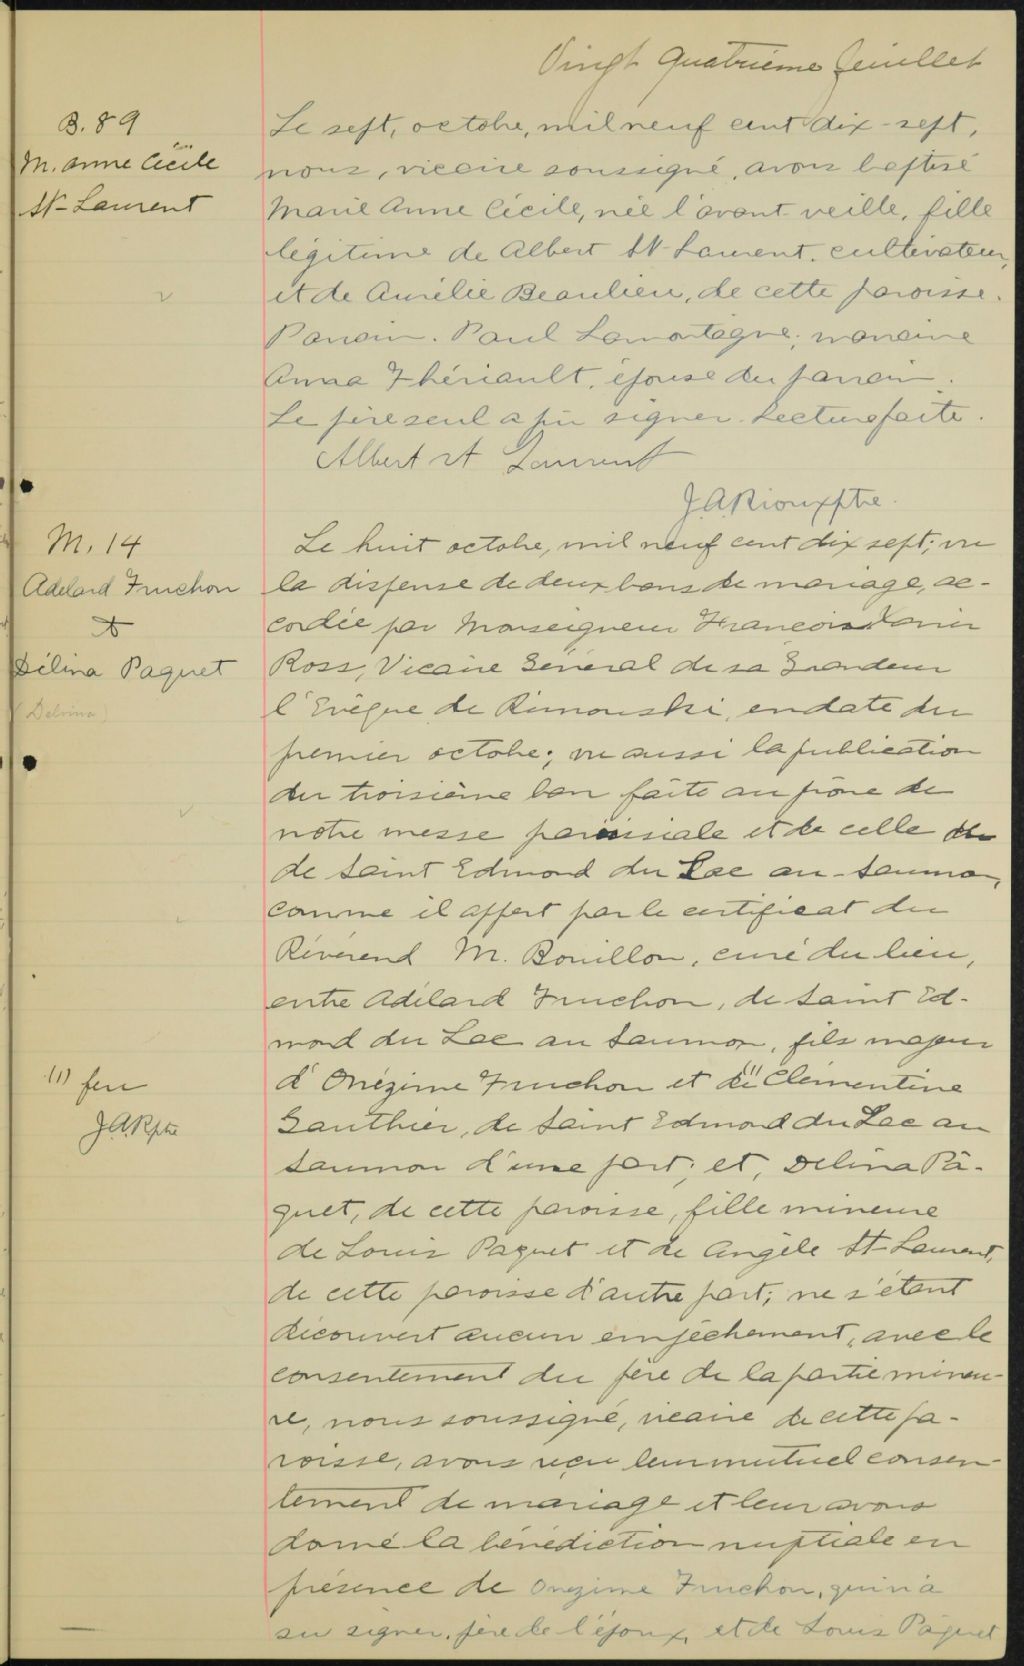 Vingt quatrième feuillet
B. 89
M. Anne Cécile
St-Laurent
Le sept, octobre, mil neuf cent dix-sept,
nous, vicaire soussigné, avons baptisé
Marie Anne Cécile, née l'avant-veille, fille
légitime de Albert St-Laurent, cultivateur,
et de Aurélie Beaulieu, de cette paroisse.
Parrain. Paul Lamontagne; marraine
Anna Thériault, épouse du parrain.
Le père seul a pu signer. Lecture faite.
Albert St Laurent
J.A. Rioux ptre.
M. 14
Adélard Fruchon
&
Délina Paquet
(Delvina)
Le huit octobre, mil neuf cent dix sept; vu
la dispense de deux bans de mariage, ac-
cordée par Monseigneur François Xavier
Ross, Vicaire Général de sa Grandeur
l'Evêque de Rimouski, en date du
premier octobre; vu aussi la publication
du troisième ban faite au prône de
notre messe paroissiale et de celle
de Saint Edmond du Lac au-Saumon,
comme il appert par le certificat du
Révérend M. Bouillon, curé du lieu,
entre Adélard Fruchon, de Saint Ed-
mond du Lac au Saumon, fils majeur
d'Onézime Fruchon et de (1) Clémentine
(1) feu
J.A.R ptre
Gauthier, de Saint Edmond du Lac au
Saumon d'une part; et, Délina Pâ-
quet, de cette paroisse, fille mineure
de Louis Paquet et de Angèle St-Laurent,
de cette paroisse d'autre part; ne s'étant
découvert aucun empêchement, avec le
consentement du père de la partie mineu-
re, nous soussigné, vicaire de cette pa-
roisse, avons reçu leur mutuel consen-
tement de mariage et leur avons
donné la bénédiction nuptiale en
présence de Onézime Fruchon, qui n'a
su signer, père de l'époux, et de Louis Pâquet